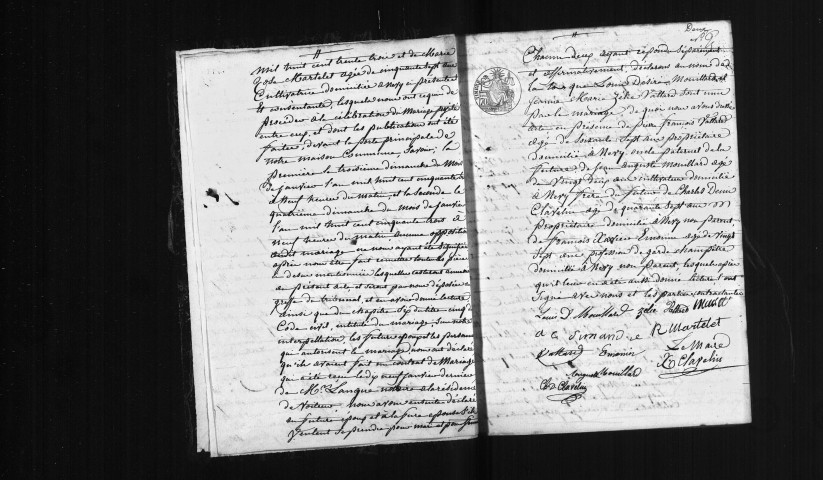 mil huit cent trente trois et de Marie
Martelet agée de cinquante sept ans
Cultivatrice domiciliée à Nevy ci présente
et consentante, lesquels nous ont requis de
procéder à la célébration du Mariage projeté
entre eux, et dont les publications ont été
faites, devant la porte principale de
notre maison Commune, Savoir, la
première le troisième dimanche du Mois
de janvier l'an mil huit cent cinquante trois
à Neuf heures du matin, et la Seconde le
quatrième dimanche du mois de janvier
l'an mil huit cent cinquante trois à
neuf heures du matin aucune opposition
audit mariage ne nous ayant été signifiée
après nous être fait remettre toutes les pièces
mentionnées lesquelles resteront annexées
au présent acte et seront par nous déposées au
greffe du tribunal, et en avoir donné lecture
ainsi que du chapitre Six du titre cinq du
Code civil, intitulé du mariage, Sur notre
interpellation, les futurs époux et les personnes
qui autorisent le mariage nous ont déclaré
qu'ils avaient fait un contrat de Mariage
qui a été reçu le dix neuf janvier dernier
de Me Lanque notaire à la résidence
de Voiteur, nous avons ensuite déclaré
au futur époux et à la future épouse s'ils
veulent Se prendre pour mari et pour femme
Chacun d'eux ayant répondu Séparément
et affirmativement, déclarons au nom de
la loi que Louis Désiré Mouillard et
Marie Zélie Vallard Sont unis
par le mariage, de quoi nous avons dressé
acte en présence de François Vallard
agé de Soixante Sept ans propriétaire
domicilié à Nevy oncle paternel de la
future, de Jean Auguste Mouillard agé
de Vingt Deux ans cultivateur domicilié
à Nevy frère du futur de Charles Denis
Clavelin agé de quarante Sept ans
propriétaire domicilié à Nevy non parent
de François Emonin agé de Vingt
Sept ans profession de garde champêtre
domicilié à Nevy non Parent, lesquels après
qu'il leur en a été aussi donné lecture ont
Signé avec nous et les parties contractantes
Louis D. Mouillard Zélie
R Martelet
Emonin Le Maire
Clavelin
Auguste Mouillard
Ch D Clavelin